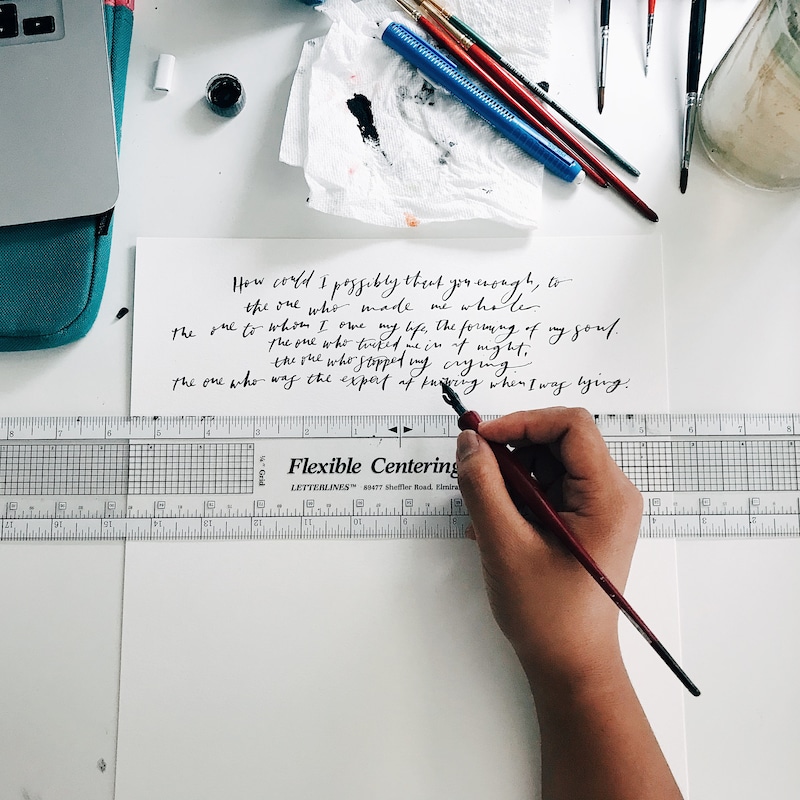 How could I possibly thank you enough, to
the one who made me whole.
The one to whom I owe my life, the forming of my soul.
The one who tucked me in at night,
the one who stopped my crying
The one who was the expert at knowing when I was lying.
8 7 6 5 4 3 2 1 1 7 8
¼" Grid
Flexible Centering
LETTERLINES™ 89477 Sheffler Road, Elmira
17 16 15 14 13 12 11 10 9 8 4 3 2